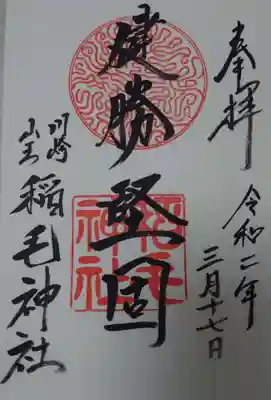 奉拝
令和二年
三月十七日
健勝堅固
川崎
山王
稲毛神社
稲毛
神社